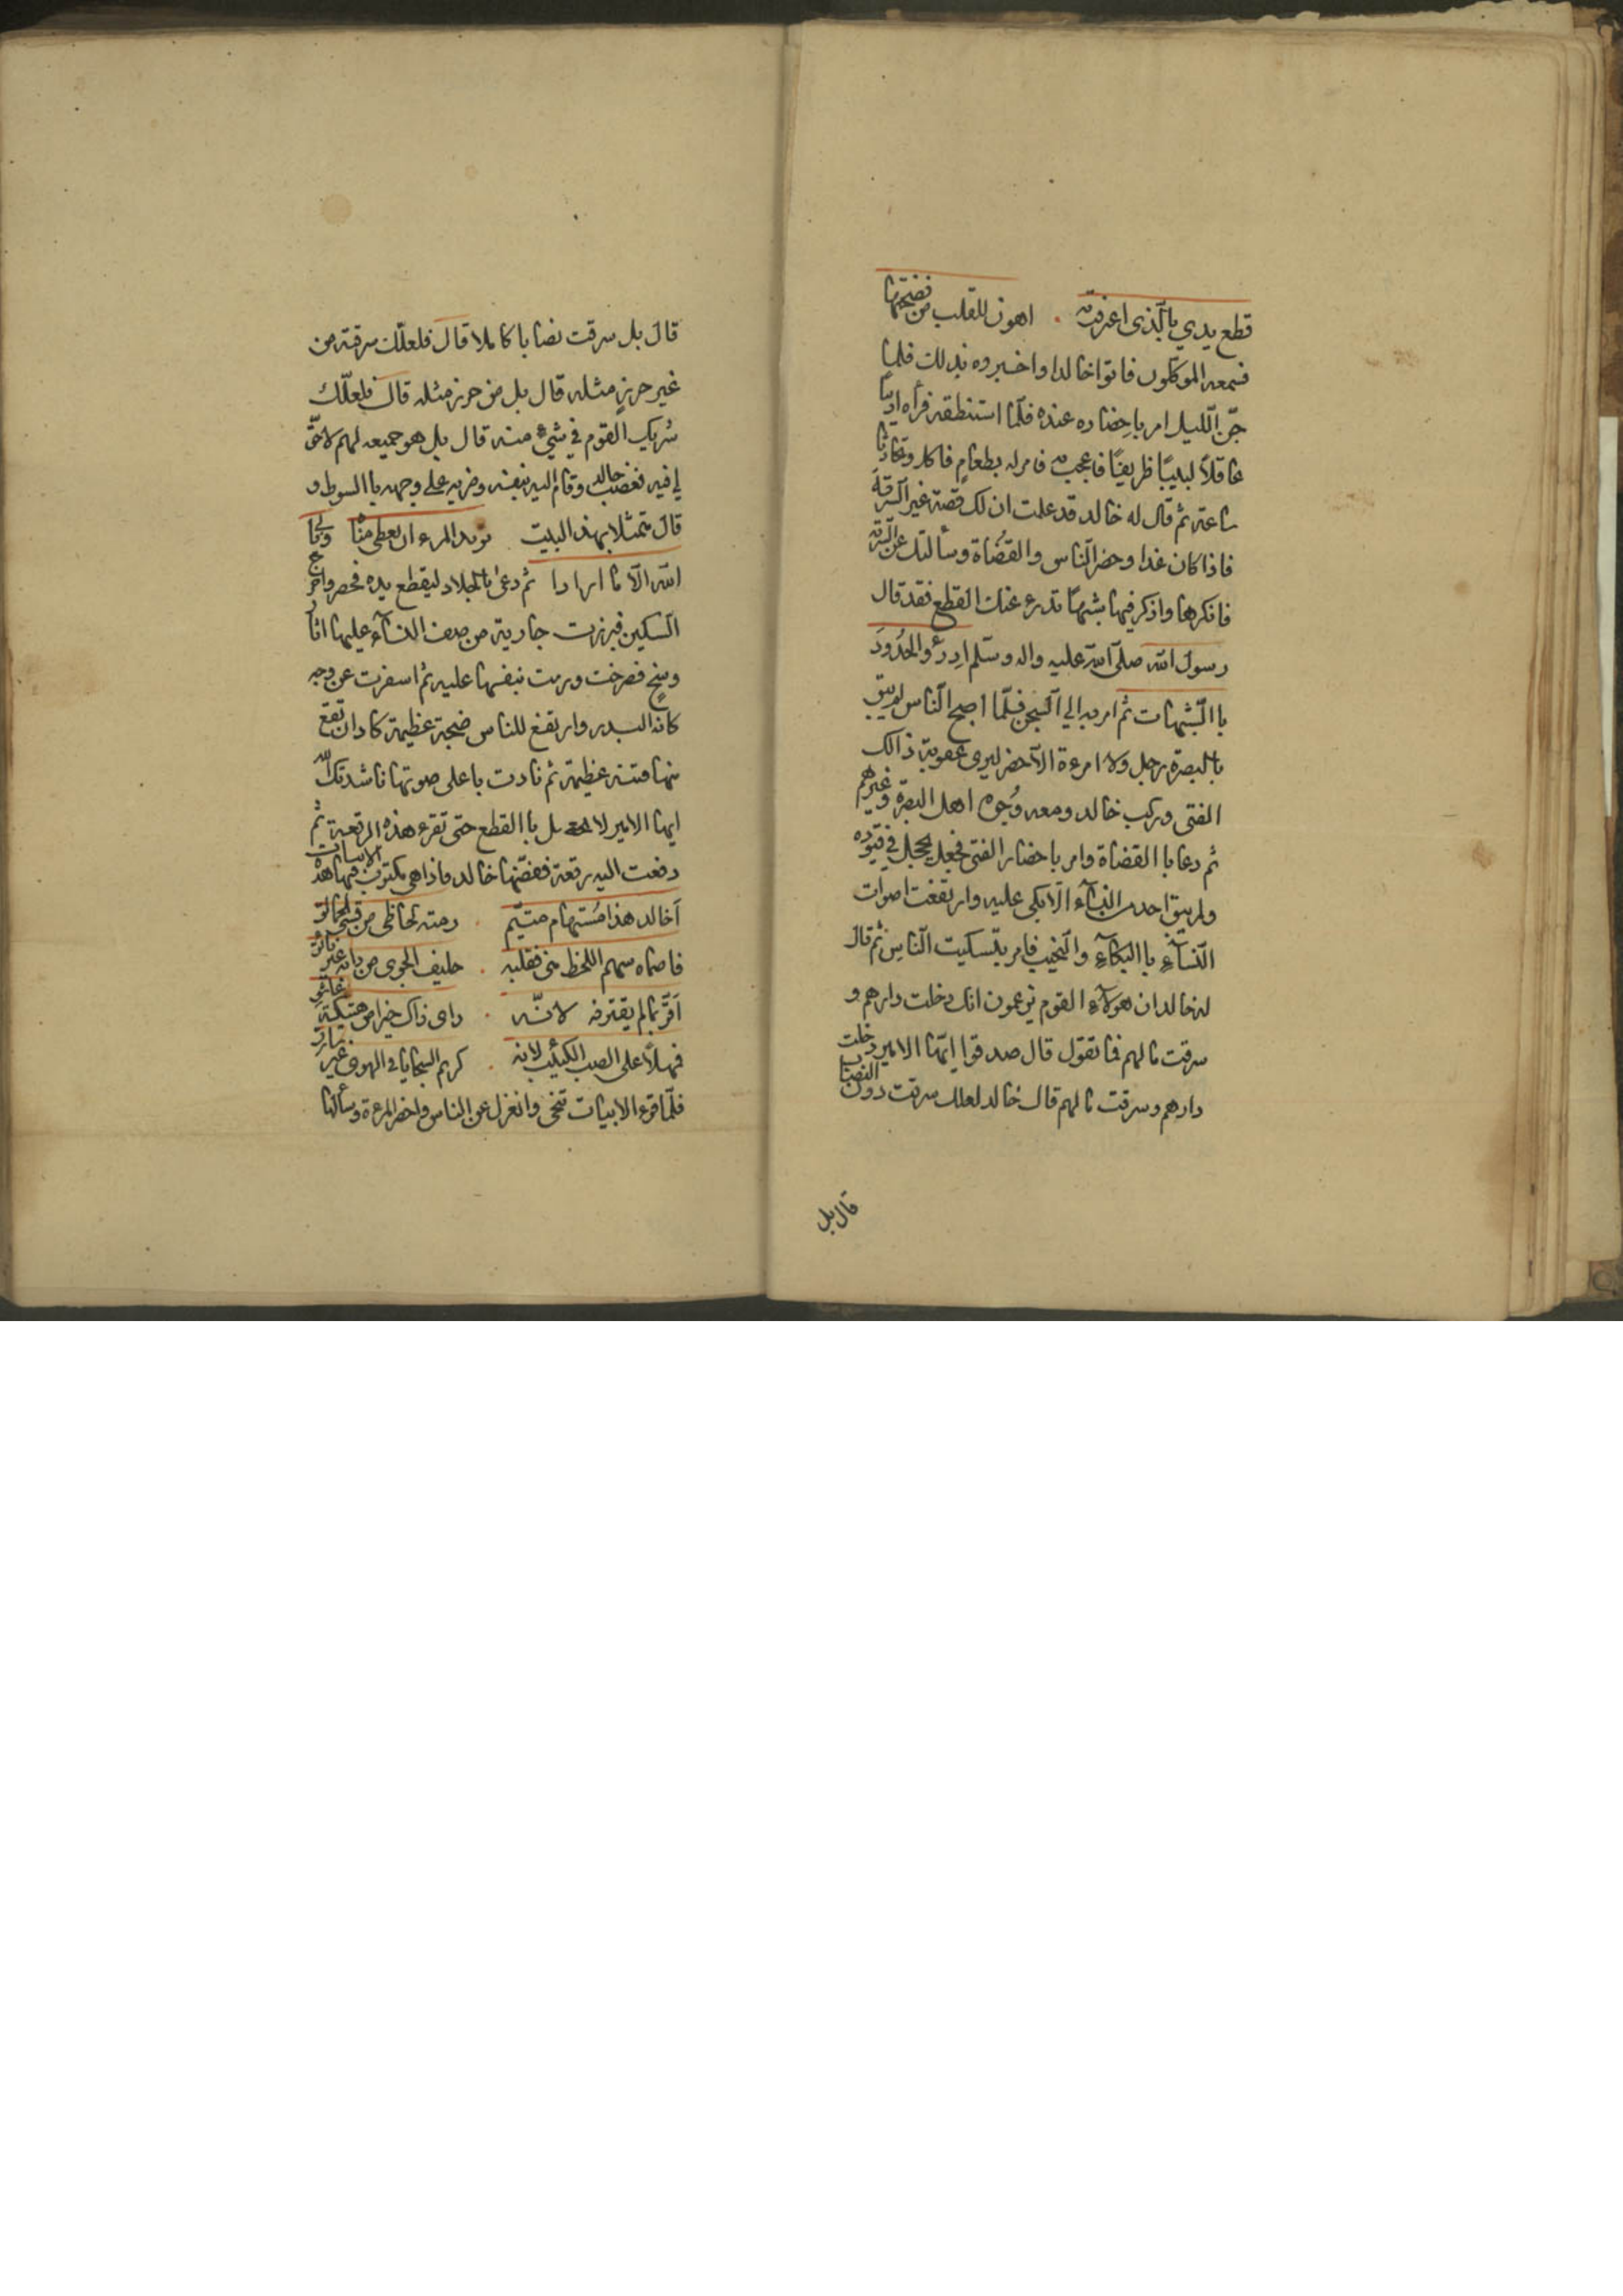 قطع يدي بالذى اعترفت به . اهون للقلب من فضيحتها
فسمعه الموكلون فاتوا خالدا واخبروه بذلك فلما
جنّ الليل امر باحضاره عنده فلمّا استنطقه فرأه اديبًا
عاقلاً لبيبًا ظريفًا فاعجب به فامر له بطعامٍ فاكل وتحادثا
ساعة ثم قال له خالد قد علمت ان لك قصة غير السرقة
فاذا كان غدا وحضر الناس والقضاة وسألتك عن السرقة
فانكرها واذكر فيها شبهًا تدرء عنك القطع فقد قال
رسول الله صلى الله عليه واله وسلم ادرؤ والحُدُودَ
باالشبهات ثم امر به الي السجن فلمّا اصبح الناس لم يبق
بالبصرة رجل ولا امرءة الا حضر ليرى عقوبة ذالك
الفتى وركب خالد ومعه وُجوه اهل البصرة وغيرهم
ثم دعا باالقضاة وامر باحضار الفتى فجعل يحجل في قيوده
ولم يبق احد من النساء الا بكى عليه وارتفعت اصوات
النسآءِ باالبكآءِ والنحيب فامر بتسكيت الناسِ ثم قال
له خالد ان هولآء القوم يزعمون انك دخلت دارهم و
سرقت مالهم فما تقول قال صدقوا ايّها الامير دخلت
دارهم وسرقت مالهم قال خالد لعلك سرقت دون النصاب
قال بل
قال بل سرقت نصابا كاملا قال فلعلّك سرقته من
غير حرزٍ مثله قال بل من حرز مثله قال فلعلّك
شريك القوم في شيءٍ منه قال بل هو جميعه لهم لاحقّ
لي فيه فغضب خالد وقام اليه بنفسه وضربه على وجهه باالسوط و
قال متمثلا بهذ البيت يريد المرء ان يعطى مناه ويابى
الله الّا ما ارادا ثم دعى بالجلاد ليقطع يده فحضر واخرج
السكين فبرزت جارية من صف النسآء عليها اثار
وسخٍ فصرخت ورمت بنفسها عليه ثم اسفرت عن وجه
كانه البدر وارتفع للناس ضجة عظيمة كاد ان تقع
منها فتنة عظيمة ثم نادت باعلى صوتها ناشدتك الله
ايها الامير لا تعجل باالقطع حتى تقرء هذه الرقعة ثم
دفعت اليه رقعة ففضّها خالد فاذا هي مكتوب فيها هذه الابيات
اَخالد هذا مُستهام متيّم . رمته لحاظى من قسي الحمالق
فاصماه سهم اللحظ منى فقلبه . حليف الجوى من دائه غير فائق
اَقرّ بمالم يقترفه لانّه . راى ذاك خيرا من هتيكة عاشق
فمهلاً على الصب الكئيب لانه . كريم السجايا فى الهوى غير سارق
فلمّا قرء الابيات تنحى وانعزل عن الناس واحضر المرءة وسألها